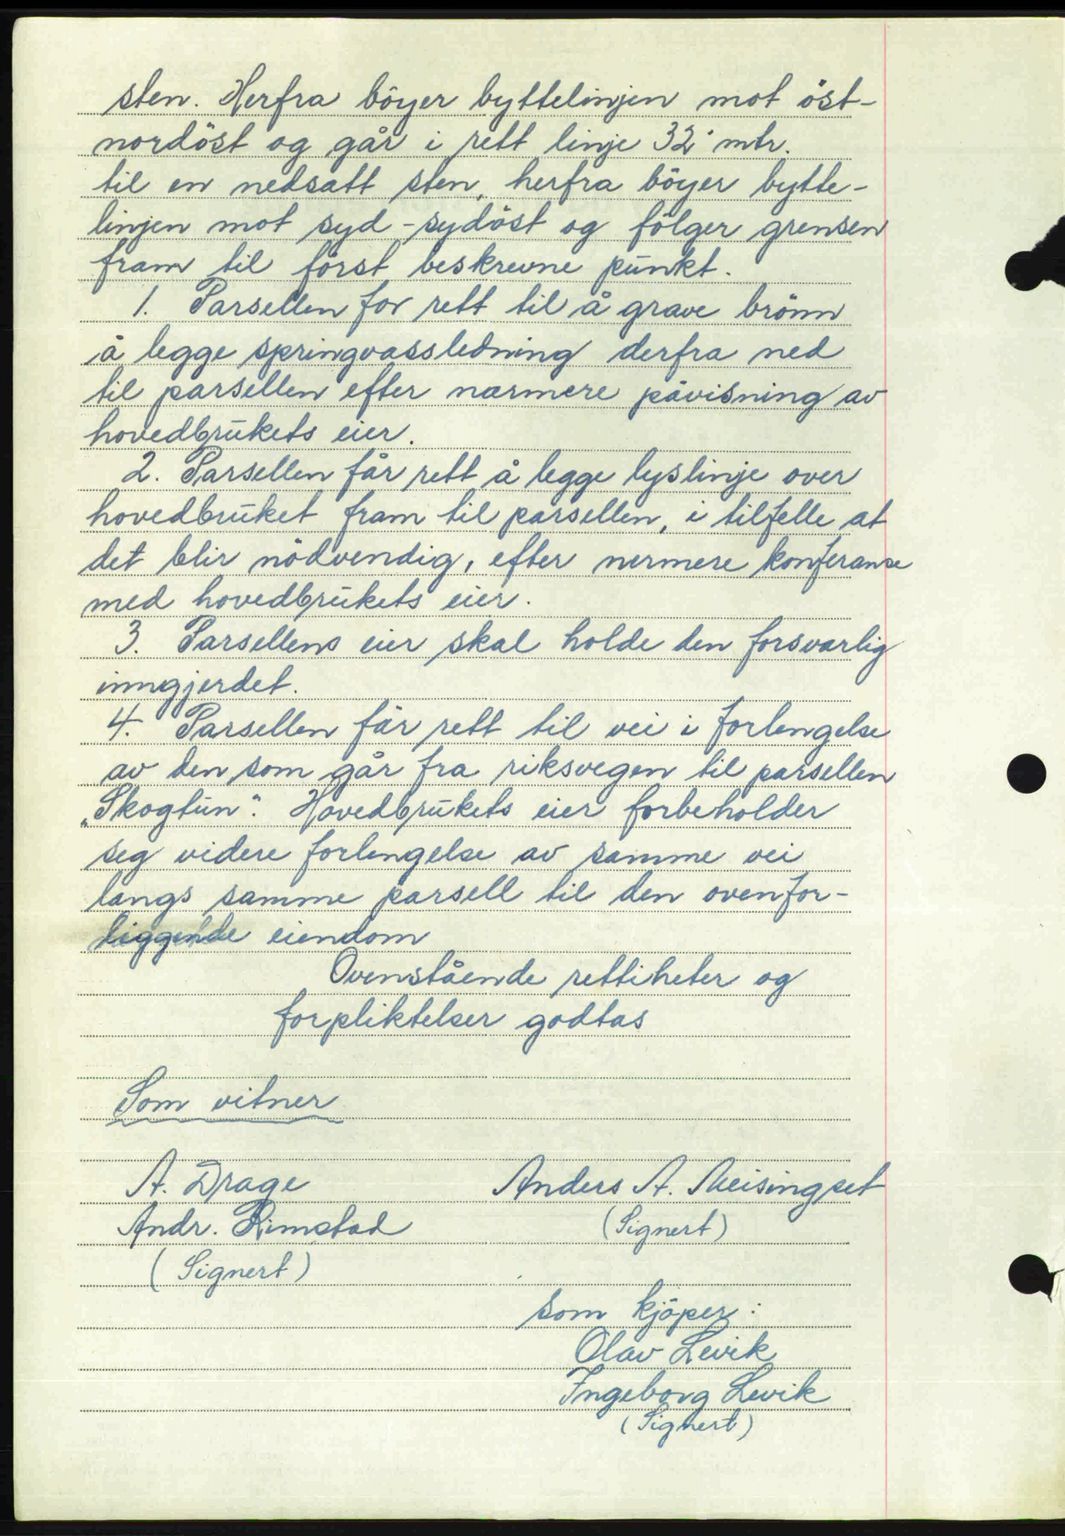 sten. Herfra böyer byttelinjen mot öst-
nordöst og går i rett linje 32 mtr.
til en nedsatt sten, herfra böyer bytte-
linjen mot syd-sydöst og fölger grensen
fram til först beskrevne punkt.
1. Parsellen for rett til å grave brönn
å legge springvassledning derfra ned
til parsellen efter nærmere påvisning av
hovedbrukets eier.
2. Parsellen får rett å legge lyslinje over
hovedbruket fram til parsellen, i tilfelle at
det blir nödvendig, efter nermere konferanse
med hovedbrukets eier.
3. Parsellens eier skal holde den forsvarlig
inngjerdet.
4. Parsellen får rett til vei i forlengelse
av den som går fra riksvegen til parsellen
"Skogtun". Hovedbrukets eier forbeholder
seg videre forlengelse av samme vei
langs samme parsell til den ovenfor-
liggende eiendom
Ovenstående rettiheter og
forpliktelser godtas
Som vitner
A. Drage
Anders A. Meisingset
Andr. Rimstad
(Signert)
(Signert)
som kjöper:
Olav Levik
Ingeborg Levik
(Signert)